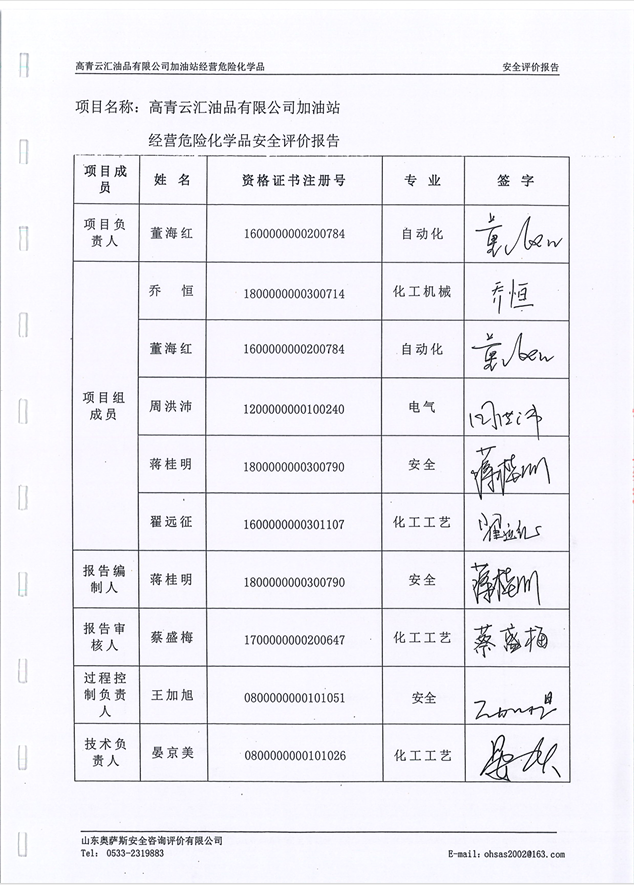 高青云汇油品有限公司加油站经营危险化学品 安全评价报告
项目名称：高青云汇油品有限公司加油站
经营危险化学品安全评价报告
项目成员 姓 名 资格证书注册号 专 业 签 字
项目负责人 董海红 1600000000200784 自动化 董
项目组成员 乔 恒 1800000000300714 化工机械 乔恒
董海红 1600000000200784 自动化 董
周洪沛 1200000000100240 电气 周洪沛
蒋桂明 1800000000300790 安全 蒋桂明
翟远征 1600000000301107 化工工艺 翟远征
报告编制人 蒋桂明 1800000000300790 安全 蒋桂明
报告审核人 蔡盛梅 1700000000200647 化工工艺 蔡盛梅
过程控制负责人 王加旭 0800000000101051 安全
技术负责人 晏京美 0800000000101026 化工工艺
山东奥萨斯安全咨询评价有限公司
Tel： 0533-2319883 E-mail：ohsas2002@163.com